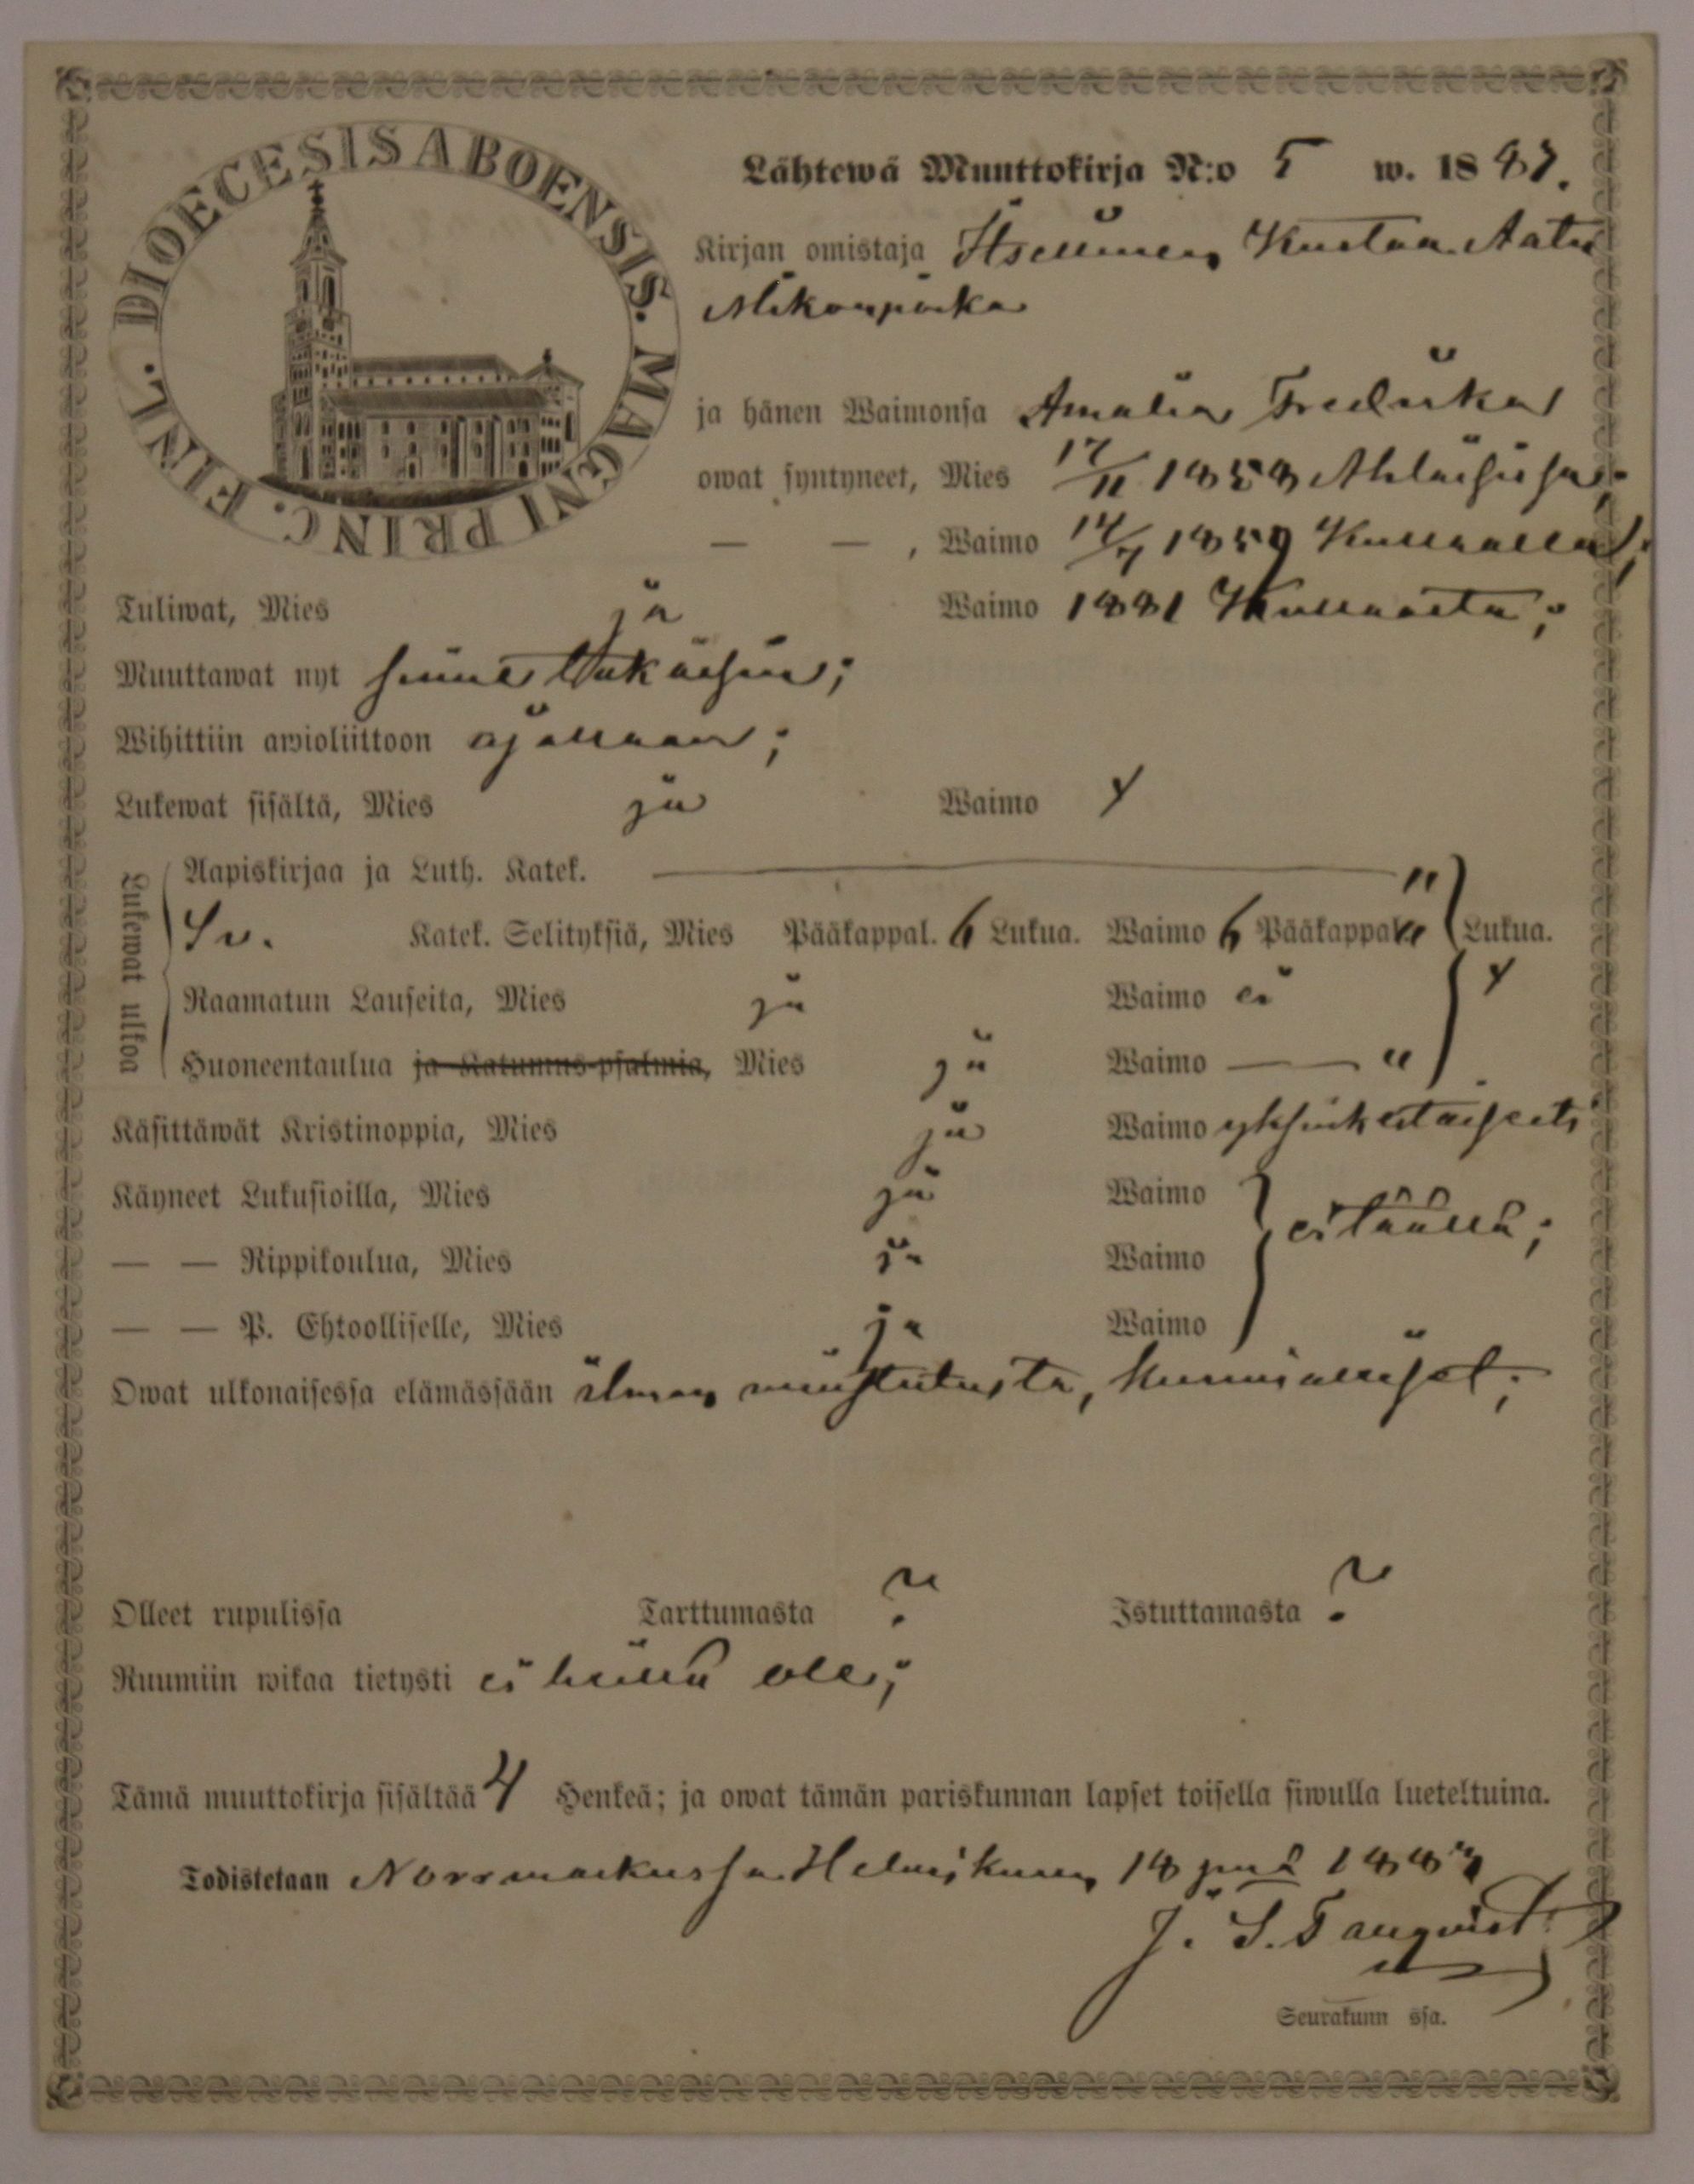 DIOECESIS ABOENSIS. MAGNI PRINC. FINL.
Lähtewä Muuttokirja N:o 5 w. 1887.
Kirjan omistaja Kustaa Aatu
Mikonpoika
ja hänen Waimonsa Amalia Fredrika
owat syntyneet, Mies 17/11 1858 Ahlaisissa;
— — , Waimo 14/7 1859 Kullaalla;
Tuliwat, Mies ja Waimo 1881 Kullaalta;
Muuttawat nyt sinne takaisin;
Wihittiin awioliittoon ajallaan;
Lukewat sisältä, Mies ja Waimo y
Lukewat ulkoa
Aapiskirjaa ja Luth. Katek. — "
Sv. Katek. Selityksiä, Mies Pääkappal. 6 Lukua. Waimo 6 Pääkappal. " Lukua.
Raamatun Lauseita, Mies ja Waimo ei y
Huoneentaulua ja Katumus-psalmia, Mies ja Waimo — "
Käsittäwät Kristinoppia, Mies ja Waimo yksinkertaisesti
Käyneet Lukusioilla, Mies ja Waimo
— — Rippikoulua, Mies ja Waimo ei täällä;
— — P. Ehtoolliselle, Mies ja Waimo
Owat ulkonaisessa elämässään ilman muistutusta, kunnialliset;
Olleet rupulissa Tarttumasta ? Istuttamasta ?
Ruumiin wikaa tietysti ei heillä ole;
Tämä muuttokirja sisältää 4 Henkeä; ja owat tämän pariskunnan lapset toisella siwulla lueteltuina.
Todistetaan Norrmarkussa Helmikuun 18 pnä 1887
J. S.
Seurakunn ssa.